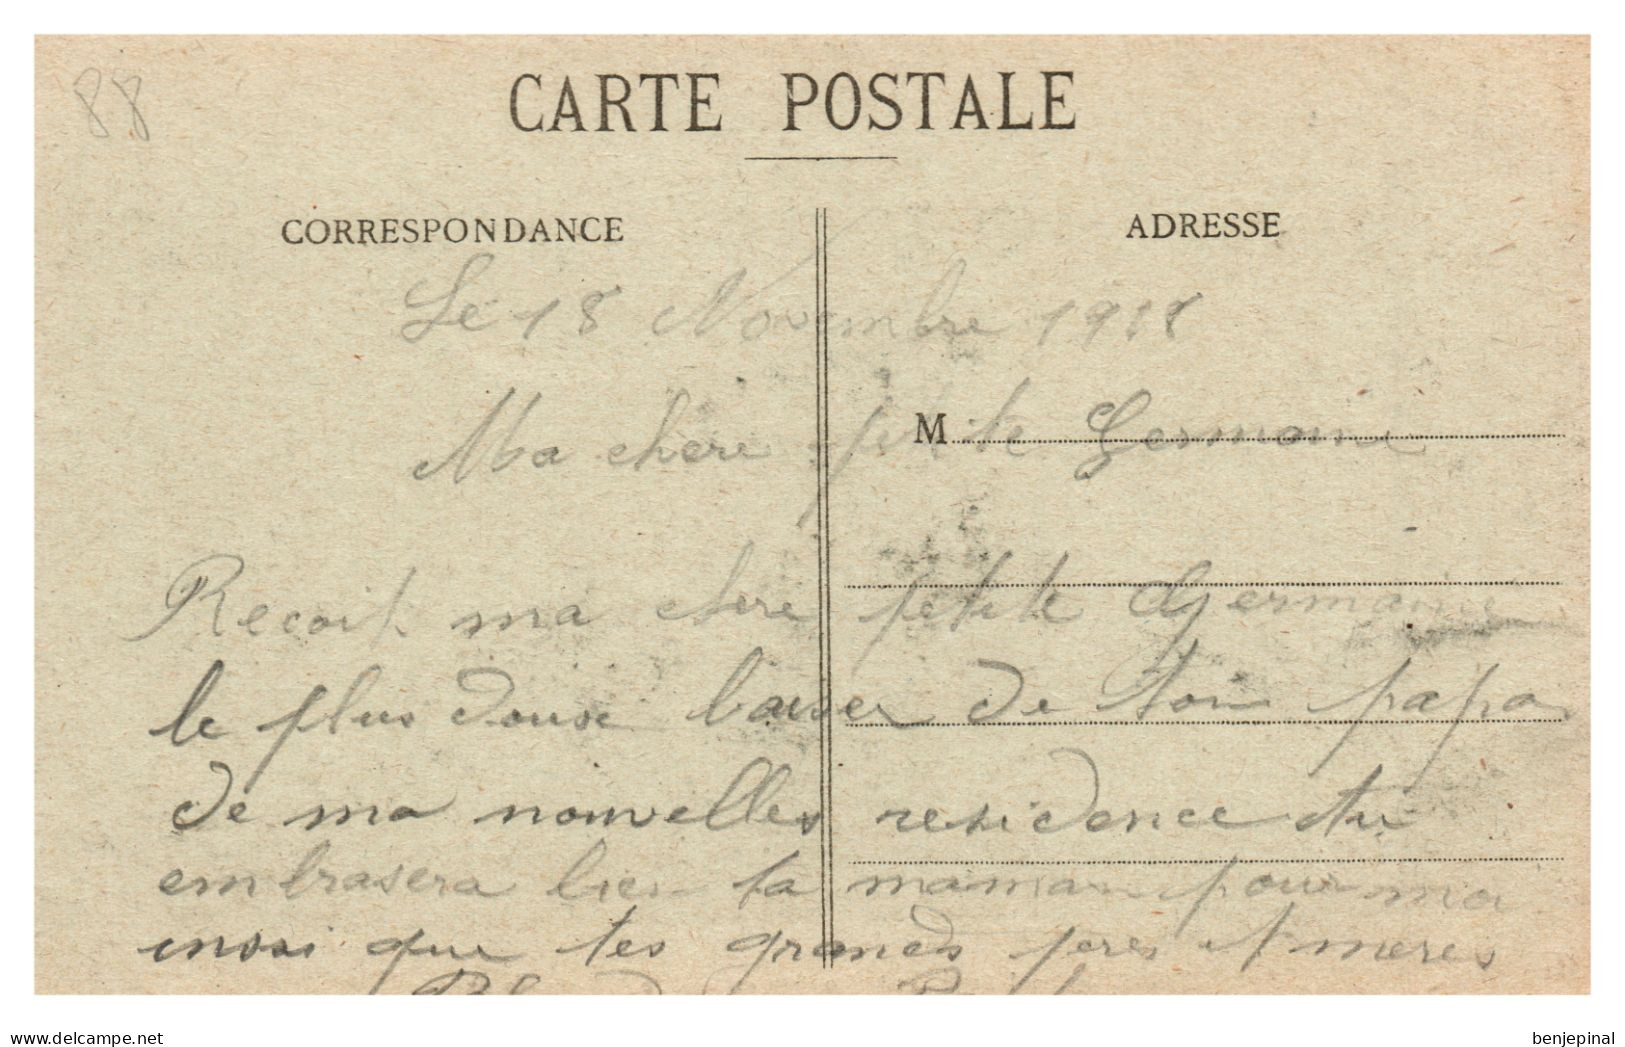 88
CARTE POSTALE
CORRESPONDANCE
ADRESSE
Le 18 Novembre 1918
M
Ma chere petite Germaine
Recoit ma chere petite Germaine
le plus douse baiser de ton papa
de ma nouvelles residence tu
embrasera bien ta maman pour moi
insi que tes grands peres et meres
www.delcampe.net
benjepinal